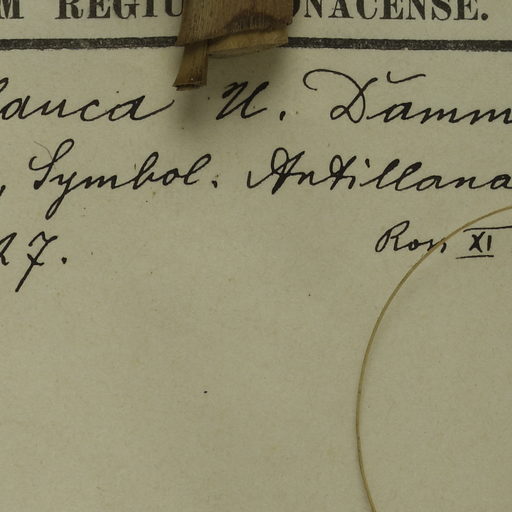 M REGIU ONACENSE.
lauca U. Damm
, Symbol. Antillana
27.
Ros XI